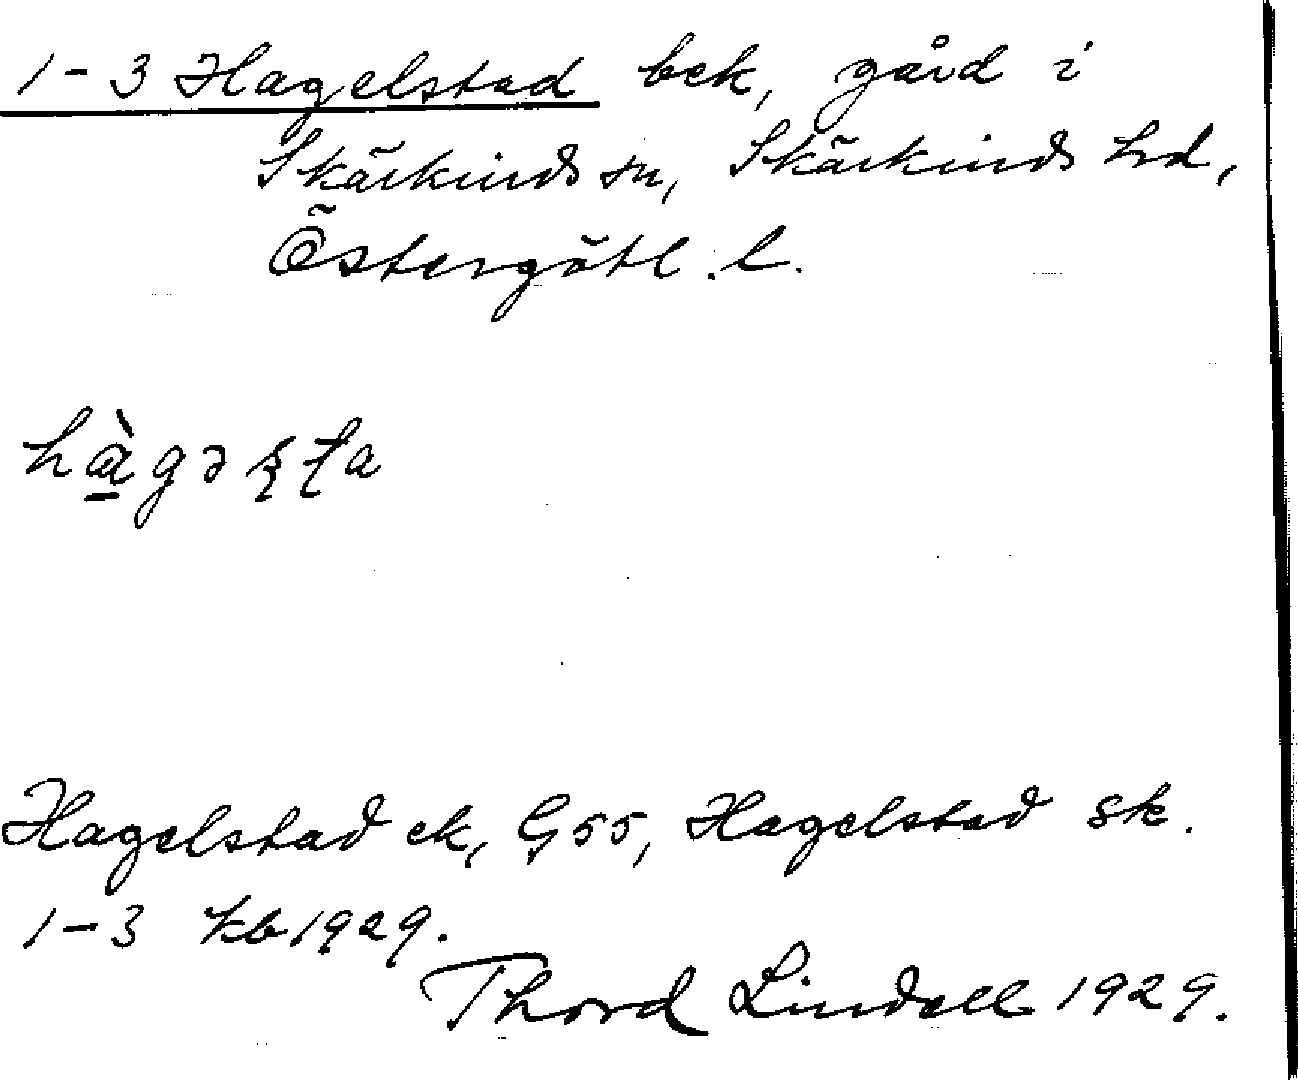 1-3 Hagelstad bek, gård i
Skärkinds sn, Skärkinds hd,
Östergötl. l.
hàgə
Hagelstad ek, G 55, Hagelstad sk.
1-3 kb 1929.
Thord Lindell 1929.